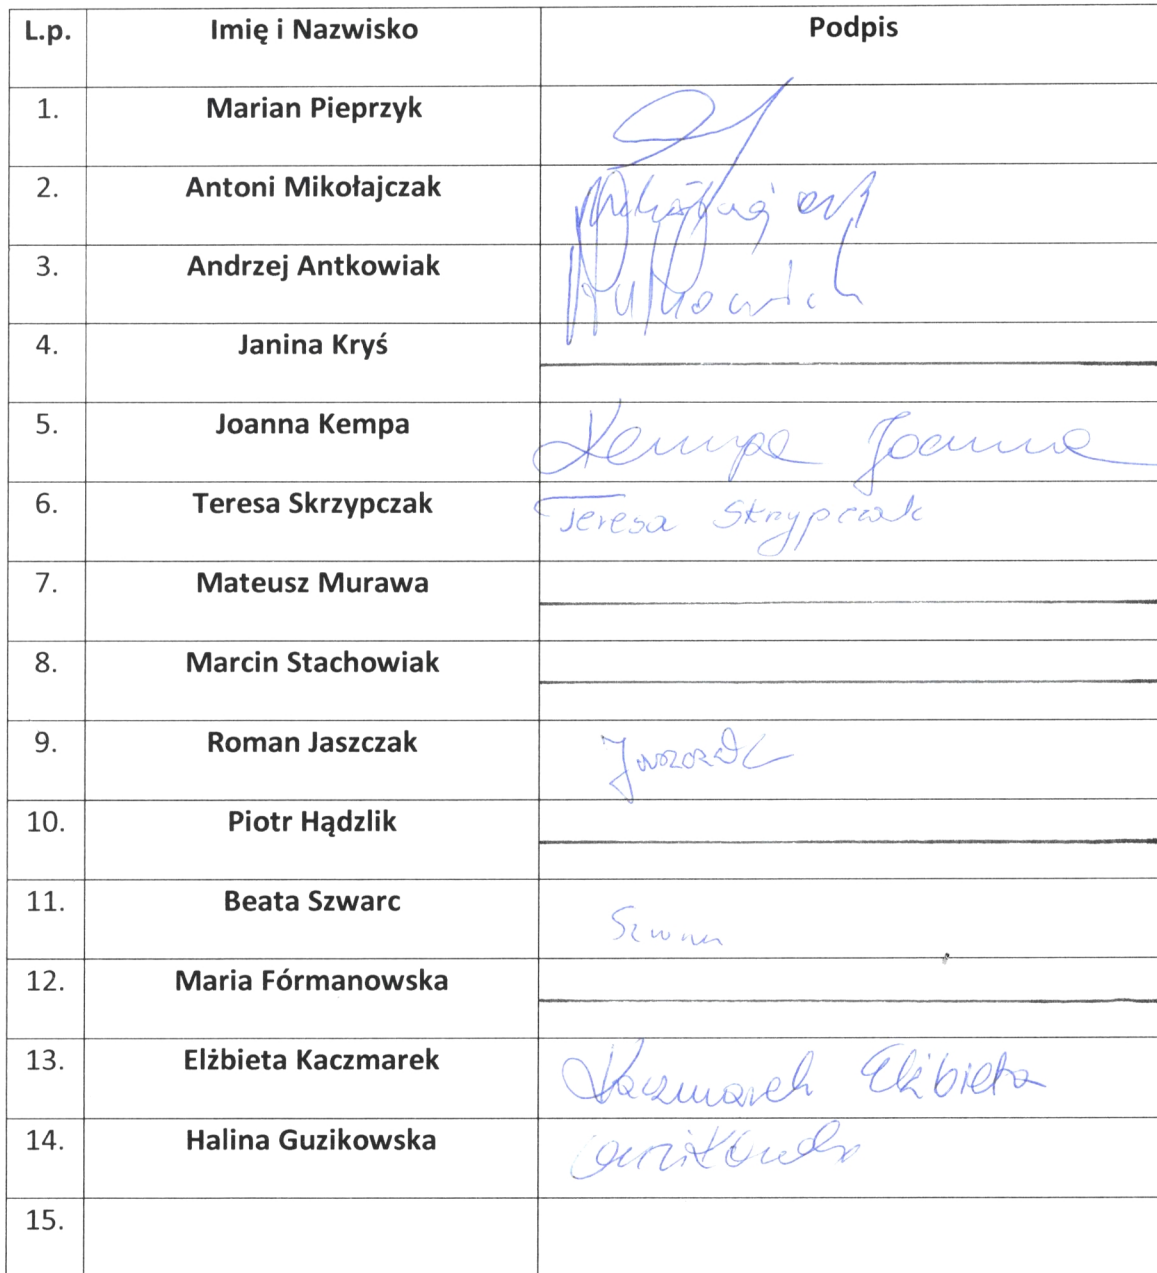 L.p. Imię i Nazwisko Podpis
1. Marian Pieprzyk
2. Antoni Mikołajczak
3. Andrzej Antkowiak
4. Janina Kryś
5. Joanna Kempa Kempa Joanna
6. Teresa Skrzypczak Teresa Skrzypczak
7. Mateusz Murawa
8. Marcin Stachowiak
9. Roman Jaszczak Jaszczak
10. Piotr Hądzlik
11. Beata Szwarc Szwarc
12. Maria Fórmanowska
13. Elżbieta Kaczmarek Kaczmarek Elżbieta
14. Halina Guzikowska
15.